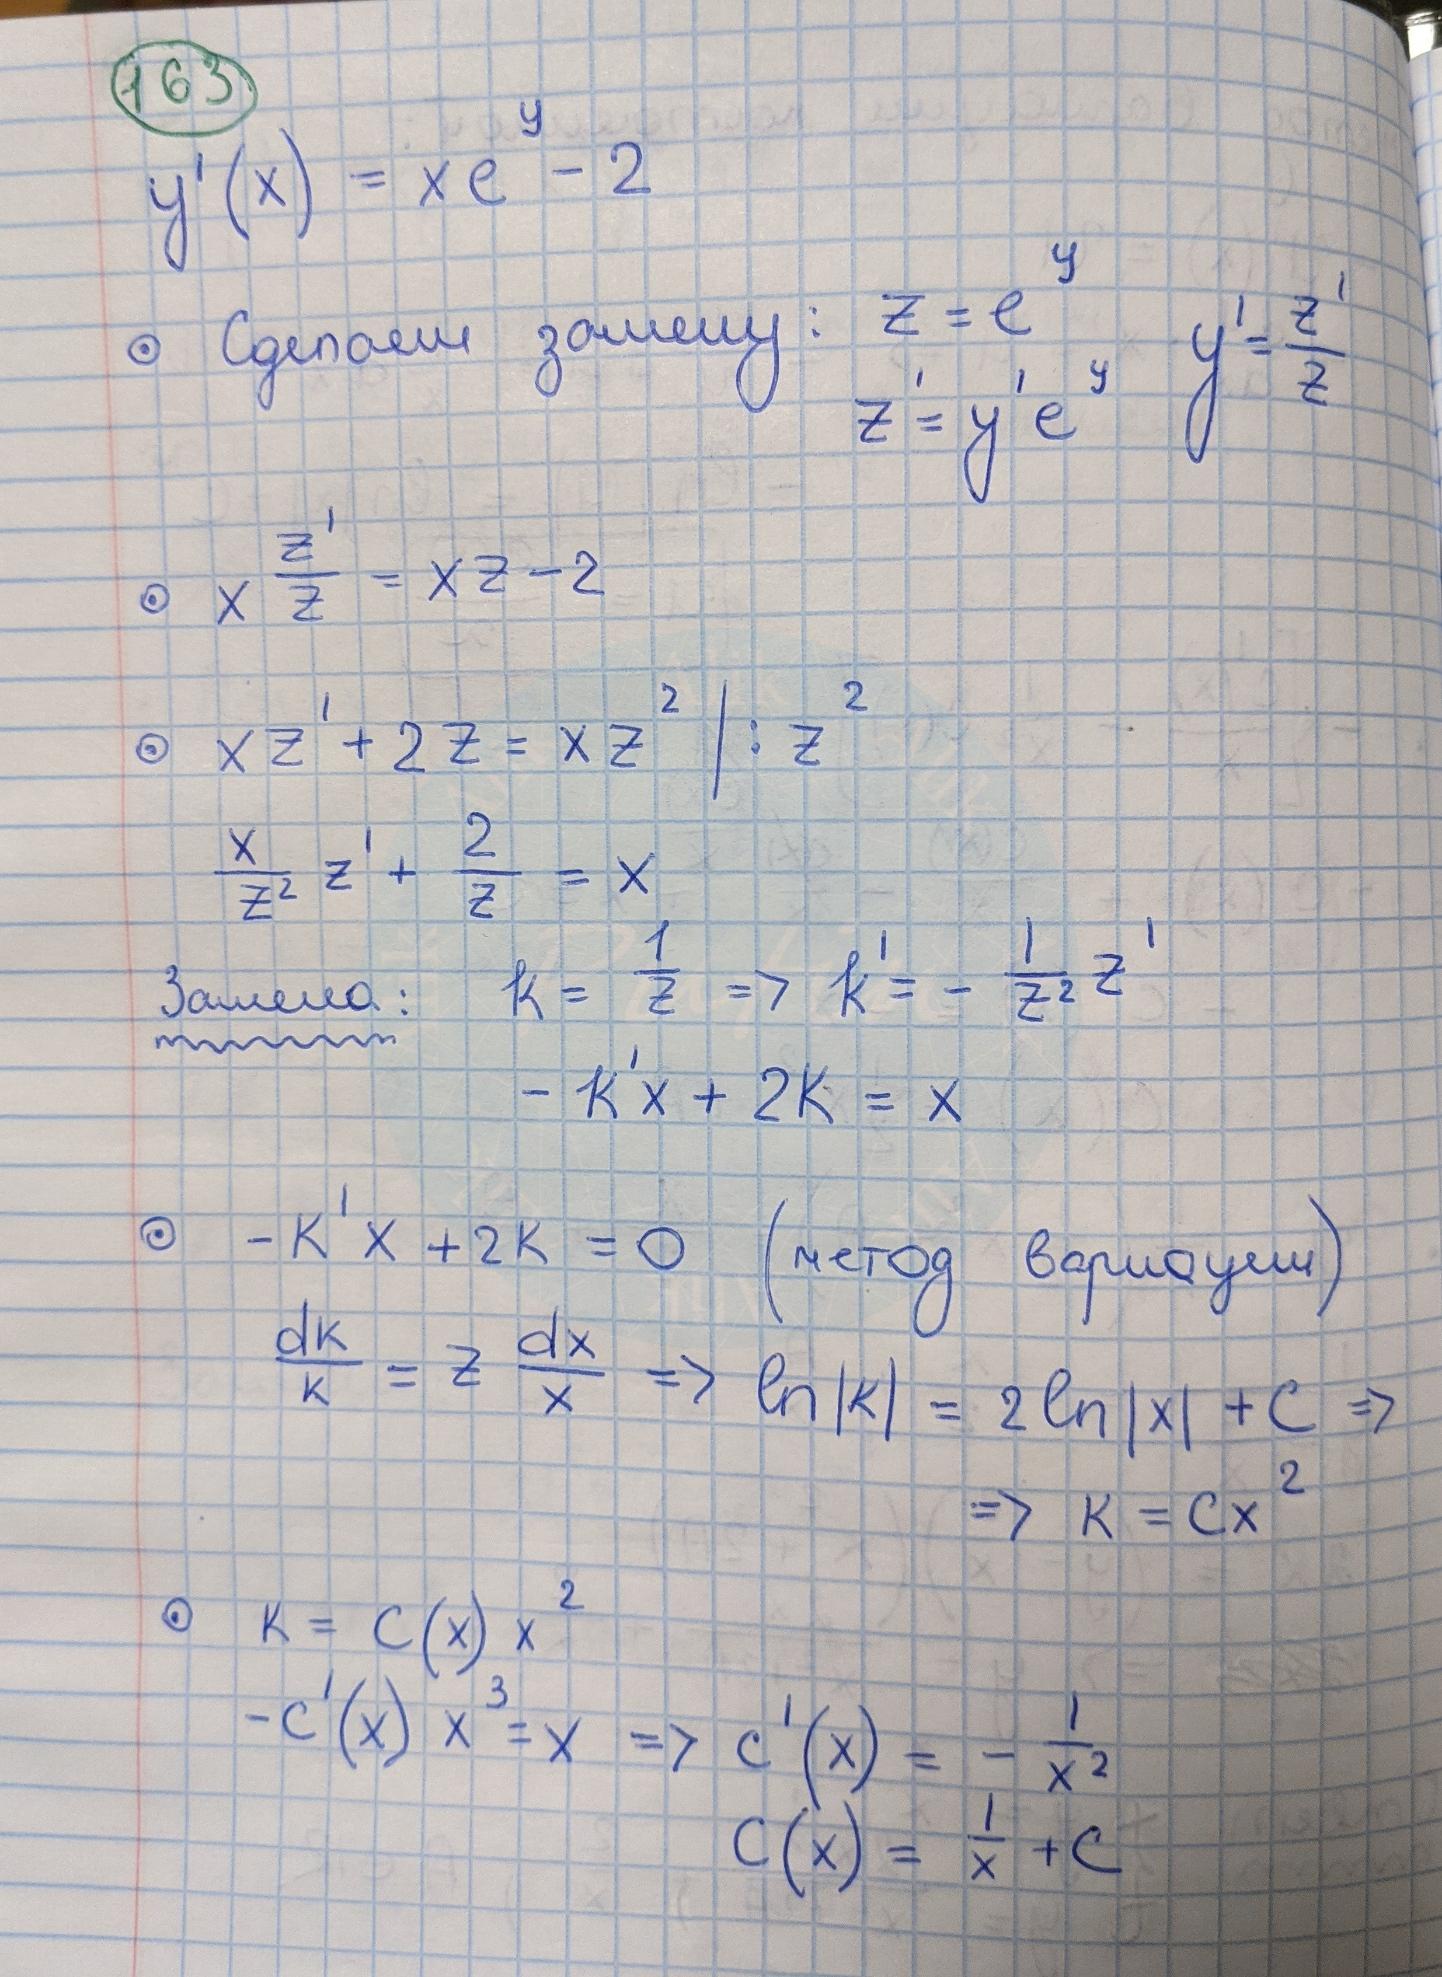 163
y'(x) = xe^y - 2
Сделаем замену: z = e^y y' = z'/z
z' = y'e^y
x z'/z = xz - 2
xz' + 2z = xz^2 | : z^2
x/z^2 z' + 2/z = x
Замена: k = 1/z => k' = - 1/z^2 z'
- k'x + 2k = x
- k'x + 2k = 0 (метод вариации)
dk/k = z dx/x => ln|k| = 2ln|x| + C =>
=> k = Cx^2
k = C(x) x^2
-C'(x) x^3 = x => C'(x) = - 1/x^2
C(x) = 1/x + C